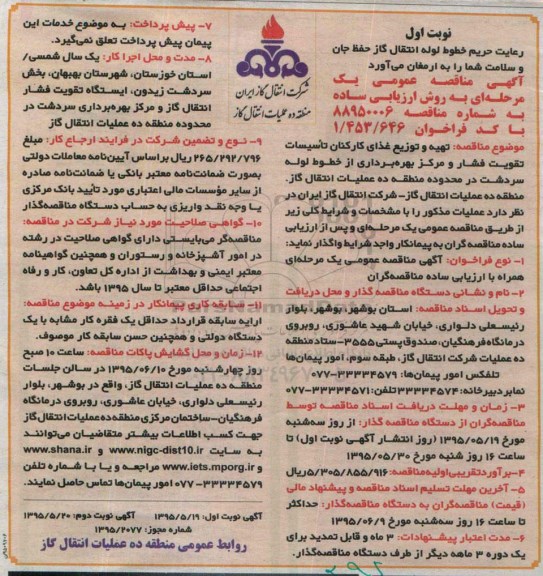 نوبت اول
رعایت حریم خطوط لوله انتقال گاز حفظ جان
و سلامت شما را به ارمغان می‌آورد
آگهی مناقصه عمومی یک
مرحله‌ای به روش ارزیابی ساده
به شماره مناقصه ۸۸۹۵۰۰۰۶
با کد فراخوان ۱/۴۵۳/۶۴۶
شرکت انتقال گاز ایران
منطقه ده عملیات انتقال گاز
موضوع مناقصه: تهیه و توزیع غذای کارکنان تأسیسات
تقویت فشار و مرکز بهره‌برداری از خطوط لوله
سردشت در محدوده منطقه ده عملیات انتقال گاز.
منطقه ده عملیات انتقال گاز- شرکت انتقال گاز ایران در
نظر دارد عملیات مذکور را با مشخصات و شرایط کلی زیر
از طریق مناقصه عمومی یک مرحله‌ای و پس از ارزیابی
ساده مناقصه گران به پیمانکار واجد شرایط واگذار نماید:
۱- نوع فراخوان: آگهی مناقصه عمومی یک مرحله‌ای
همراه با ارزیابی ساده مناقصه‌گران
۲- نام و نشانی دستگاه مناقصه گذار و محل دریافت
و تحویل اسناد مناقصه: استان بوشهر، بوشهر، بلوار
رئیسعلی دلواری، خیابان شهید عاشوری، روبروی
درمانگاه فرهنگیان، صندوق پستی ۳۵۵۵- ستاد منطقه
ده عملیات شرکت انتقال گاز، طبقه سوم، امور پیمان‌ها
تلفکس امور پیمان‌ها: ۳۳۳۳۴۵۷۹-۰۷۷
نمابر دبیرخانه: ۳۳۳۳۴۵۷۴ تلفن: ۳۳۳۳۴۵۷۱-۰۷۷
۳- زمان و مهلت دریافت اسناد مناقصه توسط
مناقصه‌گران از دستگاه مناقصه گذار: از روز سه‌شنبه
مورخ ۱۳۹۵/۰۵/۱۹ (روز انتشار آگهی نوبت اول) تا
ساعت ۱۶ روز شنبه مورخ ۱۳۹۵/۰۵/۳۰
۴- برآورد تقریبی اولیه مناقصه: ۵/۳۰۵/۸۵۵/۹۱۶ ریال
۵- آخرین مهلت تسلیم اسناد مناقصه و پیشنهاد مالی
(قیمت) مناقصه‌گران به دستگاه مناقصه‌گذار: حداکثر
تا ساعت ۱۶ روز سه‌شنبه مورخ ۱۳۹۵/۰۶/۹
۶- مدت اعتبار پیشنهادات: ۳ ماه و قابل تمدید برای
یک دوره ۳ ماهه دیگر از طرف دستگاه مناقصه‌گذار.
۷- پیش پرداخت: به موضوع خدمات این
پیمان پیش پرداخت تعلق نمی‌گیرد.
۸- مدت و محل اجرا کار: یک سال شمسی/
استان خوزستان، شهرستان بهبهان، بخش
سردشت زیدون، ایستگاه تقویت فشار
انتقال گاز و مرکز بهره‌برداری سردشت در
محدوده منطقه ده عملیات انتقال گاز
۹- نوع و تضمین شرکت در فرایند ارجاع کار: مبلغ
۲۶۵/۲۹۲/۷۹۶ ریال بر اساس آیین‌نامه معاملات دولتی
بصورت ضمانت‌نامه معتبر بانکی یا ضمانت‌نامه صادره
از سایر مؤسسات مالی اعتباری مورد تأیید بانک مرکزی
یا وجه نقد واریزی به حساب دستگاه مناقصه‌گذار
۱۰- گواهی صلاحیت مورد نیاز شرکت در مناقصه:
مناقصه‌گر می‌بایستی دارای گواهی صلاحیت در رشته
در امور آشپزخانه و رستوران و همچنین گواهینامه
معتبر ایمنی و بهداشت از اداره کل تعاون، کار و رفاه
اجتماعی حداقل معتبر تا سال ۱۳۹۵ باشد.
۱۱- سابقه کاری پیمانکار در زمینه موضوع مناقصه:
ارایه سابقه قرارداد حداقل یک فقره کار مشابه با یک
دستگاه دولتی و همچنین حسن سابقه کار موصوف.
۱۲- زمان و محل گشایش پاکات مناقصه: ساعت ۱۰ صبح
روز چهارشنبه مورخ ۱۳۹۵/۰۶/۱۰ در سالن جلسات
منطقه ده عملیات انتقال گاز، واقع در بوشهر، بلوار
رئیسعلی دلواری، خیابان عاشوری، روبروی درمانگاه
فرهنگیان- ساختمان مرکزی منطقه ده عملیات انتقال گاز
جهت کسب اطلاعات بیشتر متقاضیان می‌توانند
به سایت www.nigc-dist10.ir و www.shana.ir
و www.iets.mporg.ir مراجعه و یا با شماره تلفن
۳۳۳۳۴۵۷۹-۰۷۷ امور پیمان‌ها تماس حاصل نمایند.
آگهی نوبت اول: ۱۳۹۵/۵/۱۹ آگهی نوبت دوم: ۱۳۹۵/۵/۲۰
شماره مجوز: ۱۳۹۵/۲۰۷۷
روابط عمومی منطقه ده عملیات انتقال گاز